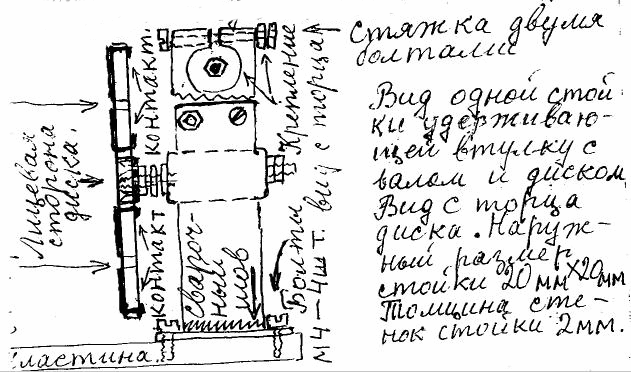 стяжка двумя
болтами
Вид одной стой-
ки удерживаю-
щей втулку с
валом и диском
Вид с торца
диска. Наруж-
ный размер
стойки 20 мм X 20 мм
Толщина сте-
нок стойки 2мм.
Лицевая
сторона
диска.
контакт.
контакт
свароч-
ный
шов
Крепление
вид с торца
Болты
М4-4шт.
пластина.